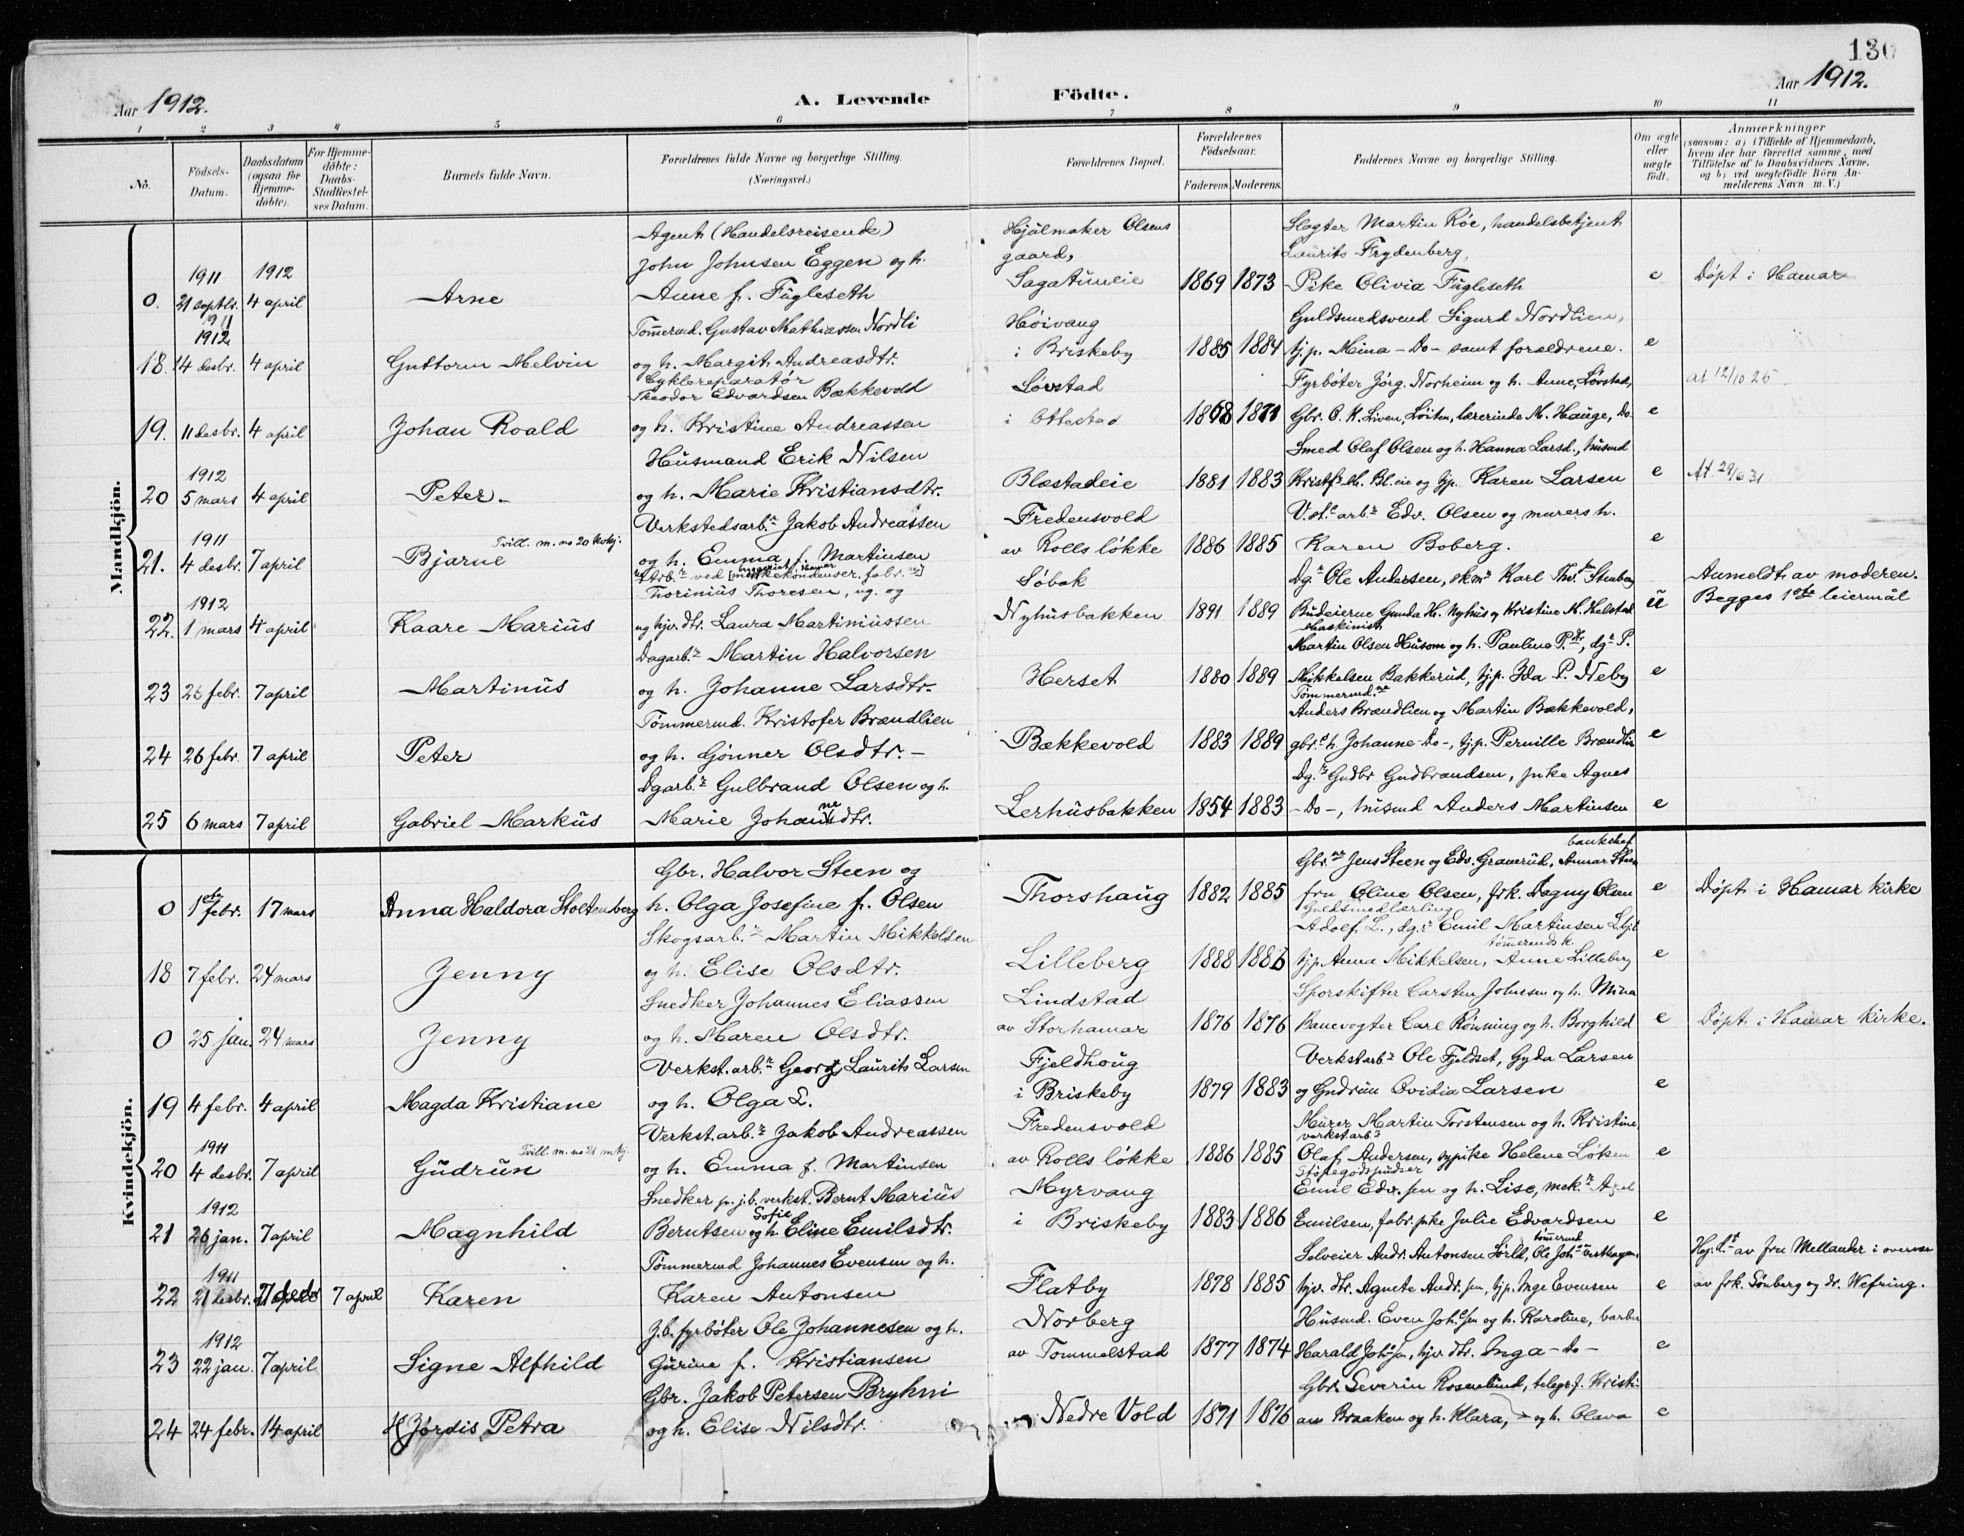 130
Aar 1912.
A. Levende Födte.
Aar 1912.
1 2 3 4 5 6 7 8 9 10 11
No.
Födsels-Datum.
Daabsdatum (ogsaa for Hjemme-døbte).
For Hjemme-døbte: Daabs-Stadfæstelses Datum.
Barnets fulde Navn.
Forældrenes fulde Navne og borgerlige Stilling. (Næringsvei.)
Forældrenes Bopæl.
Forældrenes Födselsaar.
Faderens. Moderens.
Faddernes Navne og borgerlige Stilling.
Om ægte eller uægte födt.
Anmærkninger
(saasom: a) i Tilfælde af Hjemmedaab, hvem der har forrettet samme, med Tilföielse af to Daabsvidners Navne, og b) ved uegtefödte Börn Anmelderens Navn m. V.)
Mandkjön.
Agent (Handelsreisende) Hjulmaker Olsens Slagter Martin Röe, handelsbetjent
John Johnsen Eggen og h. gaard, Laurits Frydenberg,
1911 1912
0. 21 septbr. 4 april Arne Anne f. Fugleseth Sagatuneie 1869 1873 Pike Olivia Fugleseth e Döpt i Hamar
1911
1912 Tömmermd. Gustav Mathiassen Nordli Höivang Guldsmedsvend Sigurd Nordlien,
18. 14 desbr. 4 april Guttorm Melvin og h. Margit Andreasdtr. i Briskeby 1885 1884 tj.p. Mina -Do- samt forældrene. e
Cyklereparatör
Theodor Edvardsen Bækkevold Lövstad Fyrböter Jörg. Norheim og h. Anne, Lövstad, at 12/10 25
19. 11 desbr. 4 april Johan Roald og h. Kristine Andreassen i Ottestad 1868 1871 Gbr. O. H. Liven, Löiten, lærerinde M. Hauge, Do. e
Husmand Erik Nilsen Smed Olaf Olsen og h. Hanna Larsd., husmd
1912
20 5 mars 4 april Peter. og h. Marie Kristiansdtr. Blæstadeie 1881 1883 Karen Larsen e At. 29/6 31
1911 Verkstedsarb. Jakob Andreassen Fredensvold V.st. arb. Edv. Olsen og murers h.
Tvill. m. no 20 kvkj.
21. 4 desbr. 7 april Bjarne og h. Emma f. Martinsen av Rolls lökke 1886 1885 Karen Boberg. e
Arb. ved
1912 Thorinius Thoresen, ug. og Söbak Dg. Ole Andersen, skm. Karl Anmeldt av moderen.
22. 1 mars 4 april Kaare Marius ug hjv. dtr. Laura Martiniussen Nyhusbakken 1891 1889 Budeierne Gunda H. Nyhus og Kristine M. Helstad u Begges 1ste leiermål
Maskinist
Dagarb. Martin Halvorsen Martin Olsen Husom og h. Pauline P.D., dg. P.
23 26 febr. 7 april Martinus og h. Johanne Larsdtr. Herset 1880 1889 Mikkelsen Bakkerud, tj.p. Ida P. Neby e
Tömmermd.
Tömmermd. Kristofer Brændlien Anders Brændlien og Martin Bækkevold,
24 26 febr. 7 april Peter og h. Gönner Olsdtr. Bækkevold 1883 1889 gbr. h. Johanne -Do-, tj.p. Pernille Brændlien e
Dgarb. Gulbrand Olsen og h. Dg. Gudbr Gudbrandsen, pike Agnes
25 6 mars 7 april Gabriel Markus Marie Johannedtr. Lerhusbakken 1854 1883 -Do-, husmd Anders Martinsen e
Kvindekjön.
bankchef
Gbr. Halvor Steen og Gbr. Jens Steen og Edv. Graverud, Annar Steen
0 1ste febr. 17 mars Anna Haldora Stoltenberg h. Olga Josefine f. Olsen Thorshaug 1882 1885 fru Oline Olsen, frk. Dagny Olsen e Döpt i Hamar kirke
Guldsmedlærling
Skogsarb. Martin Mikkelsen Adolf L., dg. Emil Martinsen
18 7 febr. 24 mars Jenny og h. Elise Olsdtr. Lilleberg 1888 1886 tj.p. Anna Mikkelsen, Anne Lilleberg e
Snedker Johannes Eliassen Lindstad Sporskifter Carsten Johnsen og h. Mina
0 25 jan. 24 mars Jenny og h. Maren Olsdtr. av Storhamar 1876 1876 Banevogter Carl Rönning og h. Borghild e Döpt i Hamar kirke.
Verkst.arb. Georg Laurits Larsen Fjeldhoug Verkstarb. Ole Fjeldset, Gyda Larsen
19 4 febr. 4 april Magda Kristiane og h. Olga L. i Briskeby 1879 1883 og Gudrun Ovidia Larsen e
1911 Verkst.arb. Jakob Andreassen Fredensvold Murer Martin Torstensen og h. Kristine
Tvill. m. no 21 m.kj. verkst arb.
20 4 desbr. 7 april Gudrun og h. Emma f. Martinsen av Rolls lökke 1886 1885 Olaf Andersen, sypike Helene Löken e
Stöpegodspudser
1912 Snedker p. j.b. verkst. Bernt Marius Myrvang Emil Edv. sen og h. Lise, mek. Axel
21 26 jan. 7 april Magnhild Berntsen og h. Sofie Eline Emilsdtr. i Briskeby 1883 1886 Emilsen, fabr. pke Julie Edvardsen e
1911 Tömmermd Johannes Evensen og h. Selveier Andr. Antonsen Sörli, Hvj. d. av fru Mellander i overvær
22 21 desbr. 7 april Karen Karen Antonsen Flatby 1878 1885 hjv. dtr. Agnete Andr. sen, tj.p. Inge Evensen e av frk. Sönberg og dr. Wefring.
1912 J.b. fyrböter Ole Johannesen og h. Norberg Husmd. Even Joh. sen og h. Karoline, barber
23 22 jan. 7 april Signe Alfhild Gurine f. Kristiansen av Tommelstad 1877 1874 Harald Joh. sen, hjv. dtr. Inga -Do- e
Gbr. Jakob Petersen Bryhni Gbr. Severin Rosenlund, telegr.f. Kristi-
24 24 febr. 14 april Hjördis Petra og h. Elise Nilsdtr. Nedre Vold 1871 1876 an Braaken og h. Klara, og h. Olava e